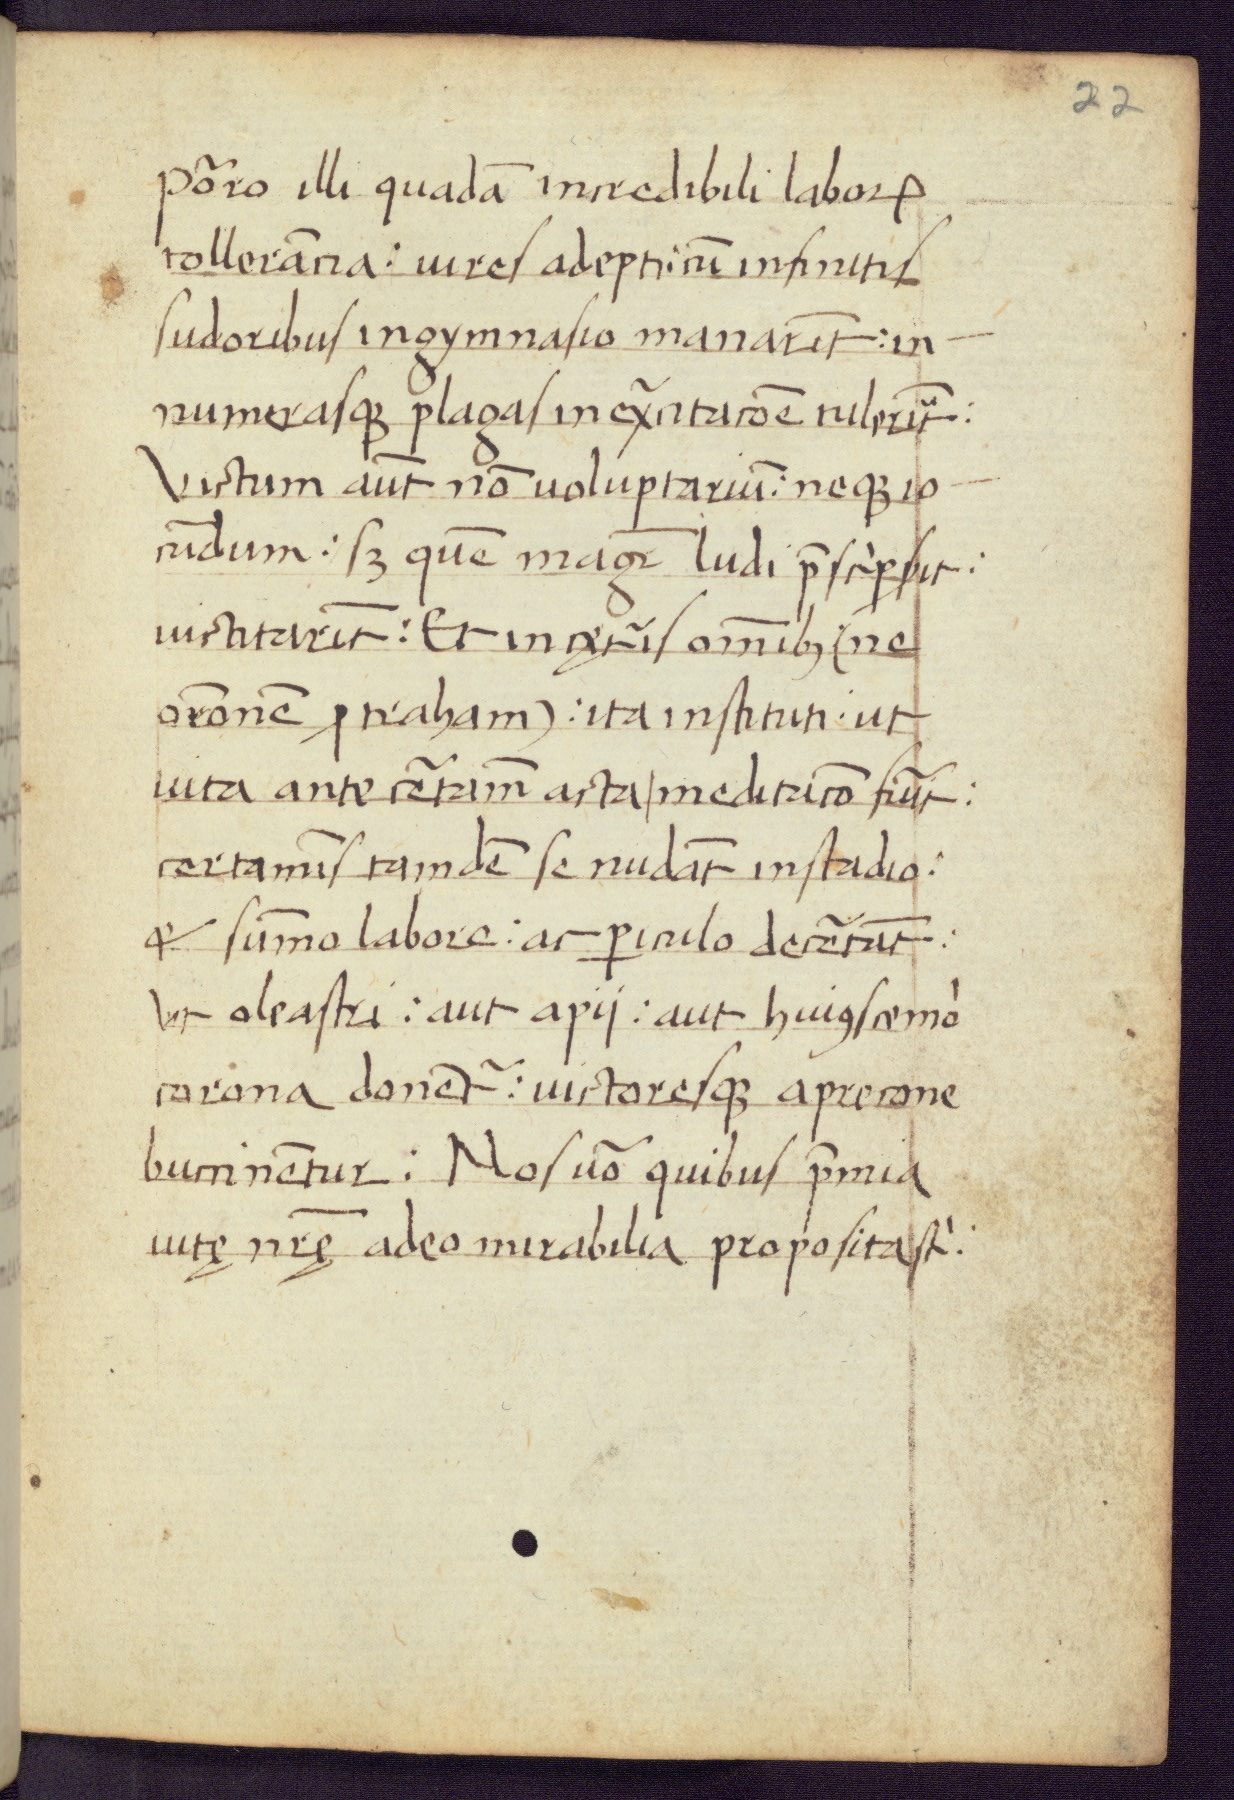 22
põro illi quadã incredibili laborꝝ
tollerãcia: uires adepti: cũ infinitis
sudoribus in gymnasio manarĩt: in-
numerasqꝫ plagas in ex̃citacõe tulerĩt:
Victum aũt nõ uoluptariũ: neqꝫ io-
cũdum: sꝫ quẽ magr̃ ludi p̃scripsit:
uictitarĩt: Et in cęt̃is om̃ibꝫ (ne
orõnẽ ꝓtraham): ita instituti: ut
uita ante cẽtam̃ acta / meditacõ fiũt:
certamĩs tamdẽ se nudãt in stadio:
& sũmo labore: ac ꝑiculo decẽtãt:
Vt oleastri: aut apij: aut huiꝯscemò
corona donẽt᷑: uictoresqꝫ a precone
buccinẽtur: Nos uõ quibus p̃mia
uitę nr̃ę adeo mirabilia proposita st̀: